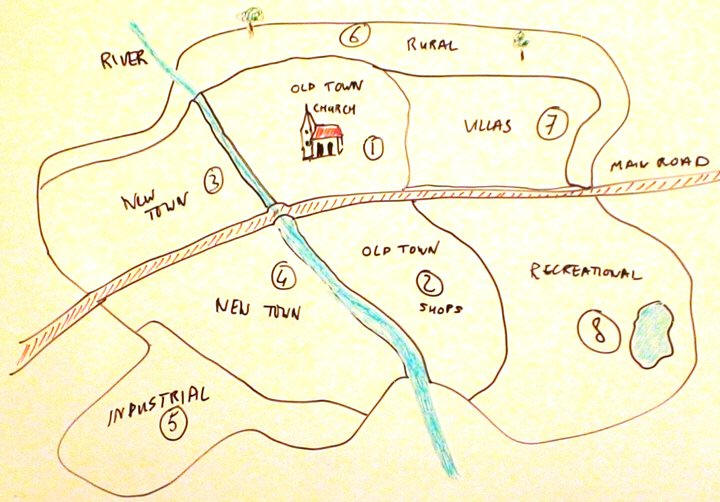 RIVER
6
RURAL
OLD TOWN
CHURCH
1
VILLAS
7
MAIN ROAD
NEW
TOWN
3
OLD TOWN
2
SHOPS
RECREATIONAL
8
4
NEW TOWN
INDUSTRIAL
5